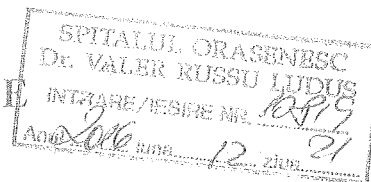 SPITALUL ORASENESC
Dr. VALER RUSSU LUDUS
E
INTRARE/IESIRE NR.
Anul 2016 luna 12 ziua 21